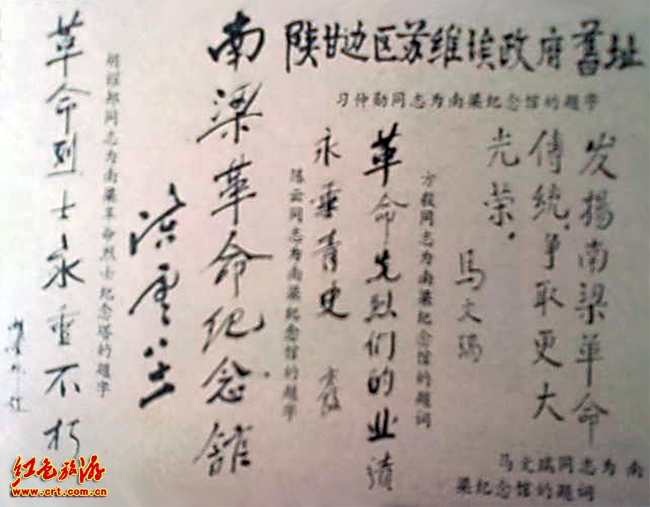 陕甘边区苏维埃政府舊址
习仲勋同志为南梁纪念馆的题字
发揚南梁革命
传统,争取更大
光荣。
马文瑞
马文瑞同志为南
梁纪念馆的题词
革命先烈们的业绩
永垂青史
方毅
方毅同志为南梁纪念馆的题词
南梁革命纪念舘
陈云
陈云同志为南梁纪念馆的题字
革命烈士永垂不朽
胡耀邦同志为南梁革命烈士纪念塔的题字
红色旅游
www.crt.com.cn